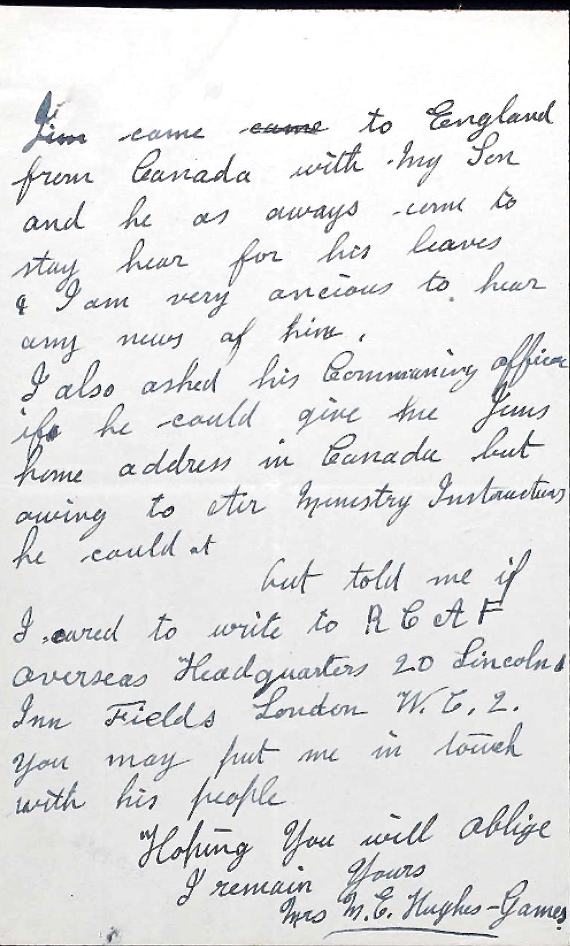 Jim came came to England
from Canada with My Son
and he as aways come to
stay hear for his leaves
& I am very ancious to hear
any news of him.
I also asked his Commaning officer
if he could give me Jims
home address in Canada but
owing to Air Ministry Instructions
he could at
but told me if
I cared to write to R C A F
overseas Headquarters 20 Lincolns
Inn Fields London W.C.2.
you may put me in touch
with his people
Hoping You will oblige
I remain Yours
Mrs M.E. Hughes-Games